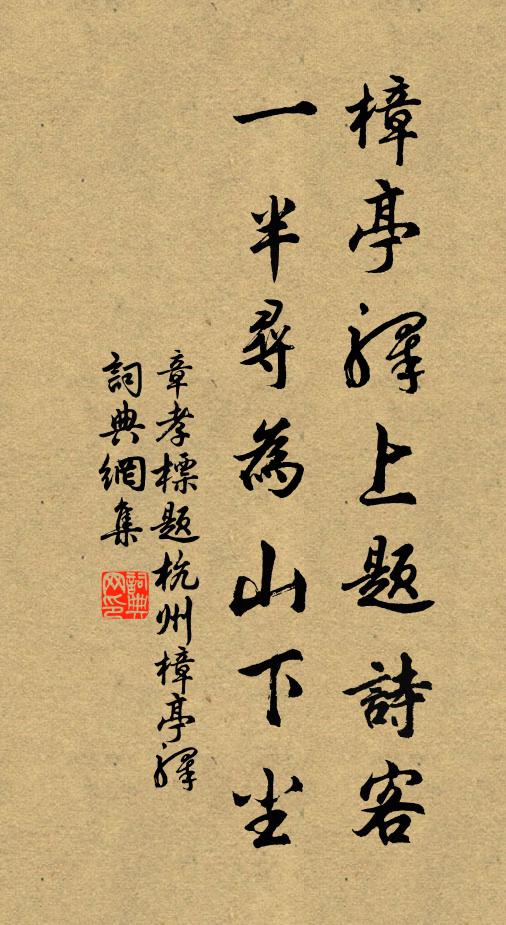 樟亭驛上題詩客
一半尋為山下尘
章孝標題杭州樟亭驛
詞典網集
詞典
网印